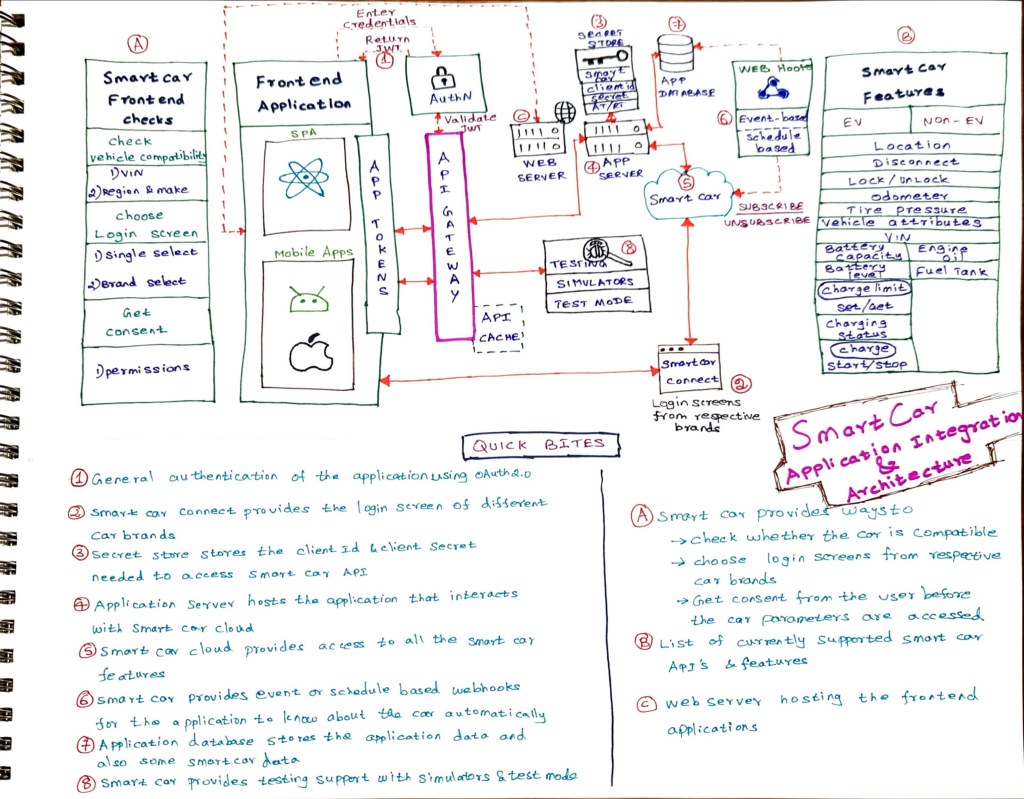 Enter
Credentials
Return
JWT
1
A
Smart car
Frontend
checks
Check
vehicle compatibility
1) VIN
2) Region & make
choose
Login screen
1) Single select
2) Brand select
Get
consent
1) permissions
Frontend
Application
SPA
Mobile Apps
APP TOKENS
AuthN
Validate
JWT
API GATEWAY
API
CACHE
C
WEB
SERVER
3
SECRET
STORE
Smart
car
client id
secret
AT/RT
4
APP
SERVER
7
APP
DATABASE
WEB Hooks
6
Event-based
Schedule
based
5
Smart Car
SUBSCRIBE
UNSUBSCRIBE
8
TESTING
SIMULATORS
TEST MODE
Smartcar
connect
2
Login screens
from respective
brands
B
Smart Car
Features
EV
Non-EV
Location
Disconnect
Lock/UnLock
Odometer
Tire pressure
Vehicle attributes
VIN
Battery
Capacity
Engine
oil
Battery
level
Fuel Tank
Charge limit
Set/Get
Charging
Status
Charge
Start/Stop
Smart Car
Application Integration
&
Architecture
QUICK BITES
1 General authentication of the application using OAuth2.0
2 Smart car connect provides the login screen of different
car brands
3 Secret store stores the client Id & client Secret
needed to access smart car API
4 Application Server hosts the application that interacts
with Smart car cloud
5 Smart car cloud provides access to all the smart car
features
6 Smart car provides event or schedule based webhooks
for the application to know about the car automatically
7 Application database stores the application data and
also some smartcar data
8 Smart car provides testing support with simulators & test mode
A Smart car provides ways to
→ Check whether the car is compatible
→ choose login screens from respective
car brands
→ Get consent from the user before
the car parameters are accessed
B List of currently supported smart car
API's & features
C Web Server hosting the frontend
applications